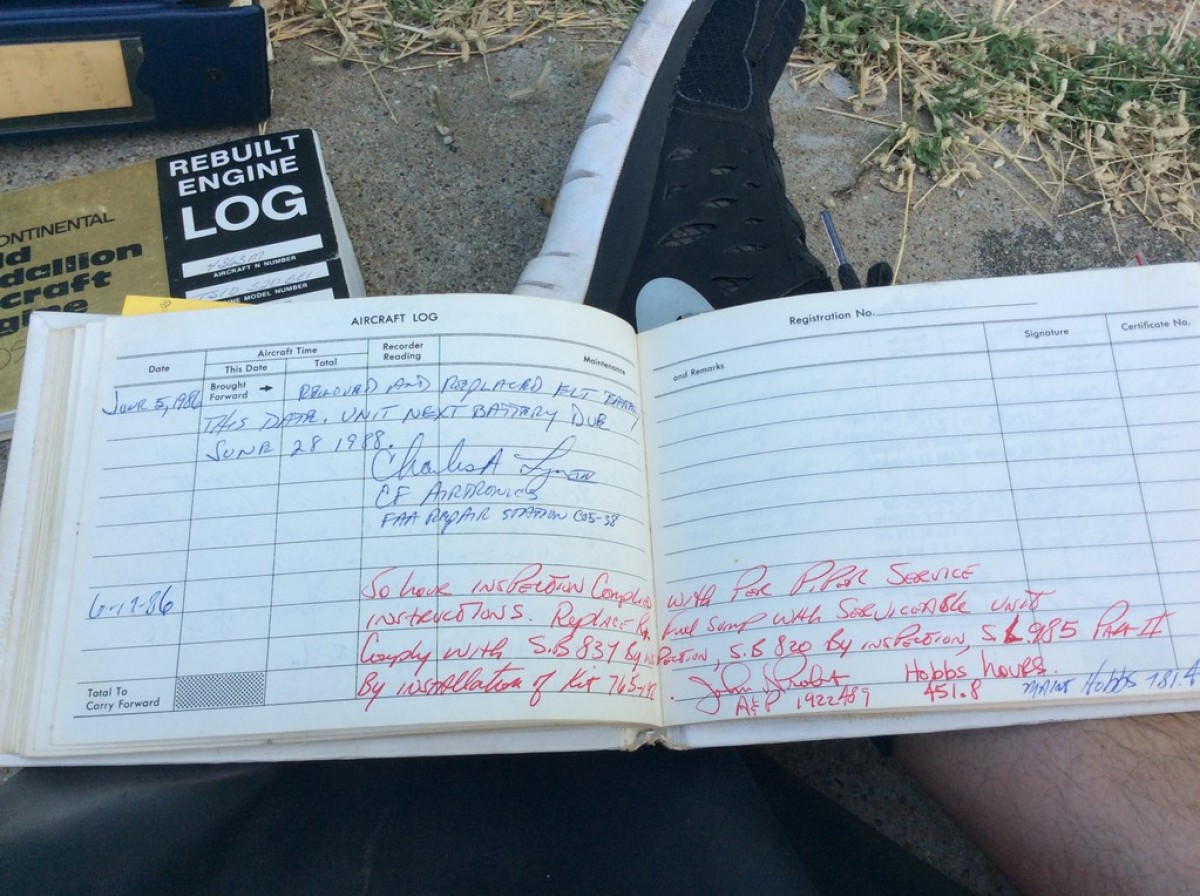 REBUILT
ENGINE
LOG
AIRCRAFT N NUMBER
MODEL NUMBER
ONTINENTAL
dallion
craft
AIRCRAFT LOG
Registration No.
Date
Aircraft Time
This Date
Total
Recorder Reading
Maintenance and Remarks
Signature
Certificate No.
Brought Forward
JUNE 5, 1986 REMOVED AND REPLACED ELT
THIS DATE. UNIT NEXT BATTERY DUE
JUNE 28 1988.
Charles A
CF AIRTRONICS
FAA REPAIR STATION C05-38
6-17-86 50 hour INSPECTION Complied WITH PER PIPER SERVICE
INSTRUCTIONS. Replace Rt. Fuel Sump with SERVICEABLE UNIT
Comply with S.B 837 By INSPECTION, S.B 820 By INSPECTION, S.L 985 Part II
By INSTAllation of Kit
John
A&P 1922489
Hobbs hours.
451.8
MAINT Hobbs 181.4
Total To
Carry Forward